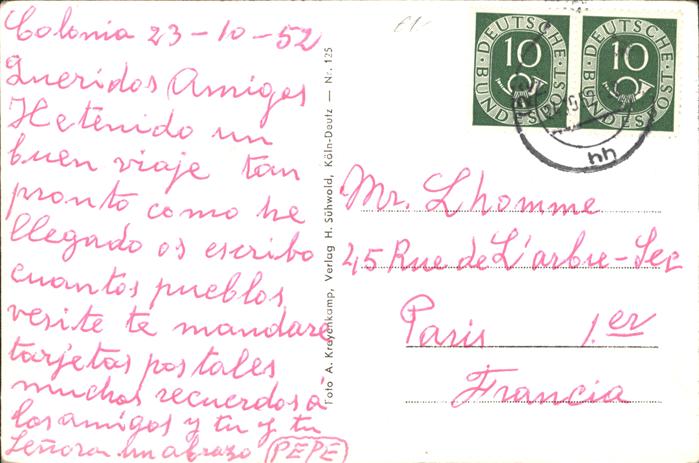 Colonia 23-10-52
Queridos Amigos
He tenido un
buen viaje tan
pronto como he
llegado os escribo
cuantos pueblos
vesite te mandare
tarjetas postales
muchos recuerdos á
los amigos y tu y tu
Señora un abrazo (PEPE)
Foto A. Krayenkamp, Verlag H. Sühwold, Köln-Deutz — Nr. 125
DEUTSCHE BUNDESPOST 10
DEUTSCHE BUNDESPOST 10
Mr. Lhomme
45 Rue de L'arbre-Sec
Paris 1.er
Francia